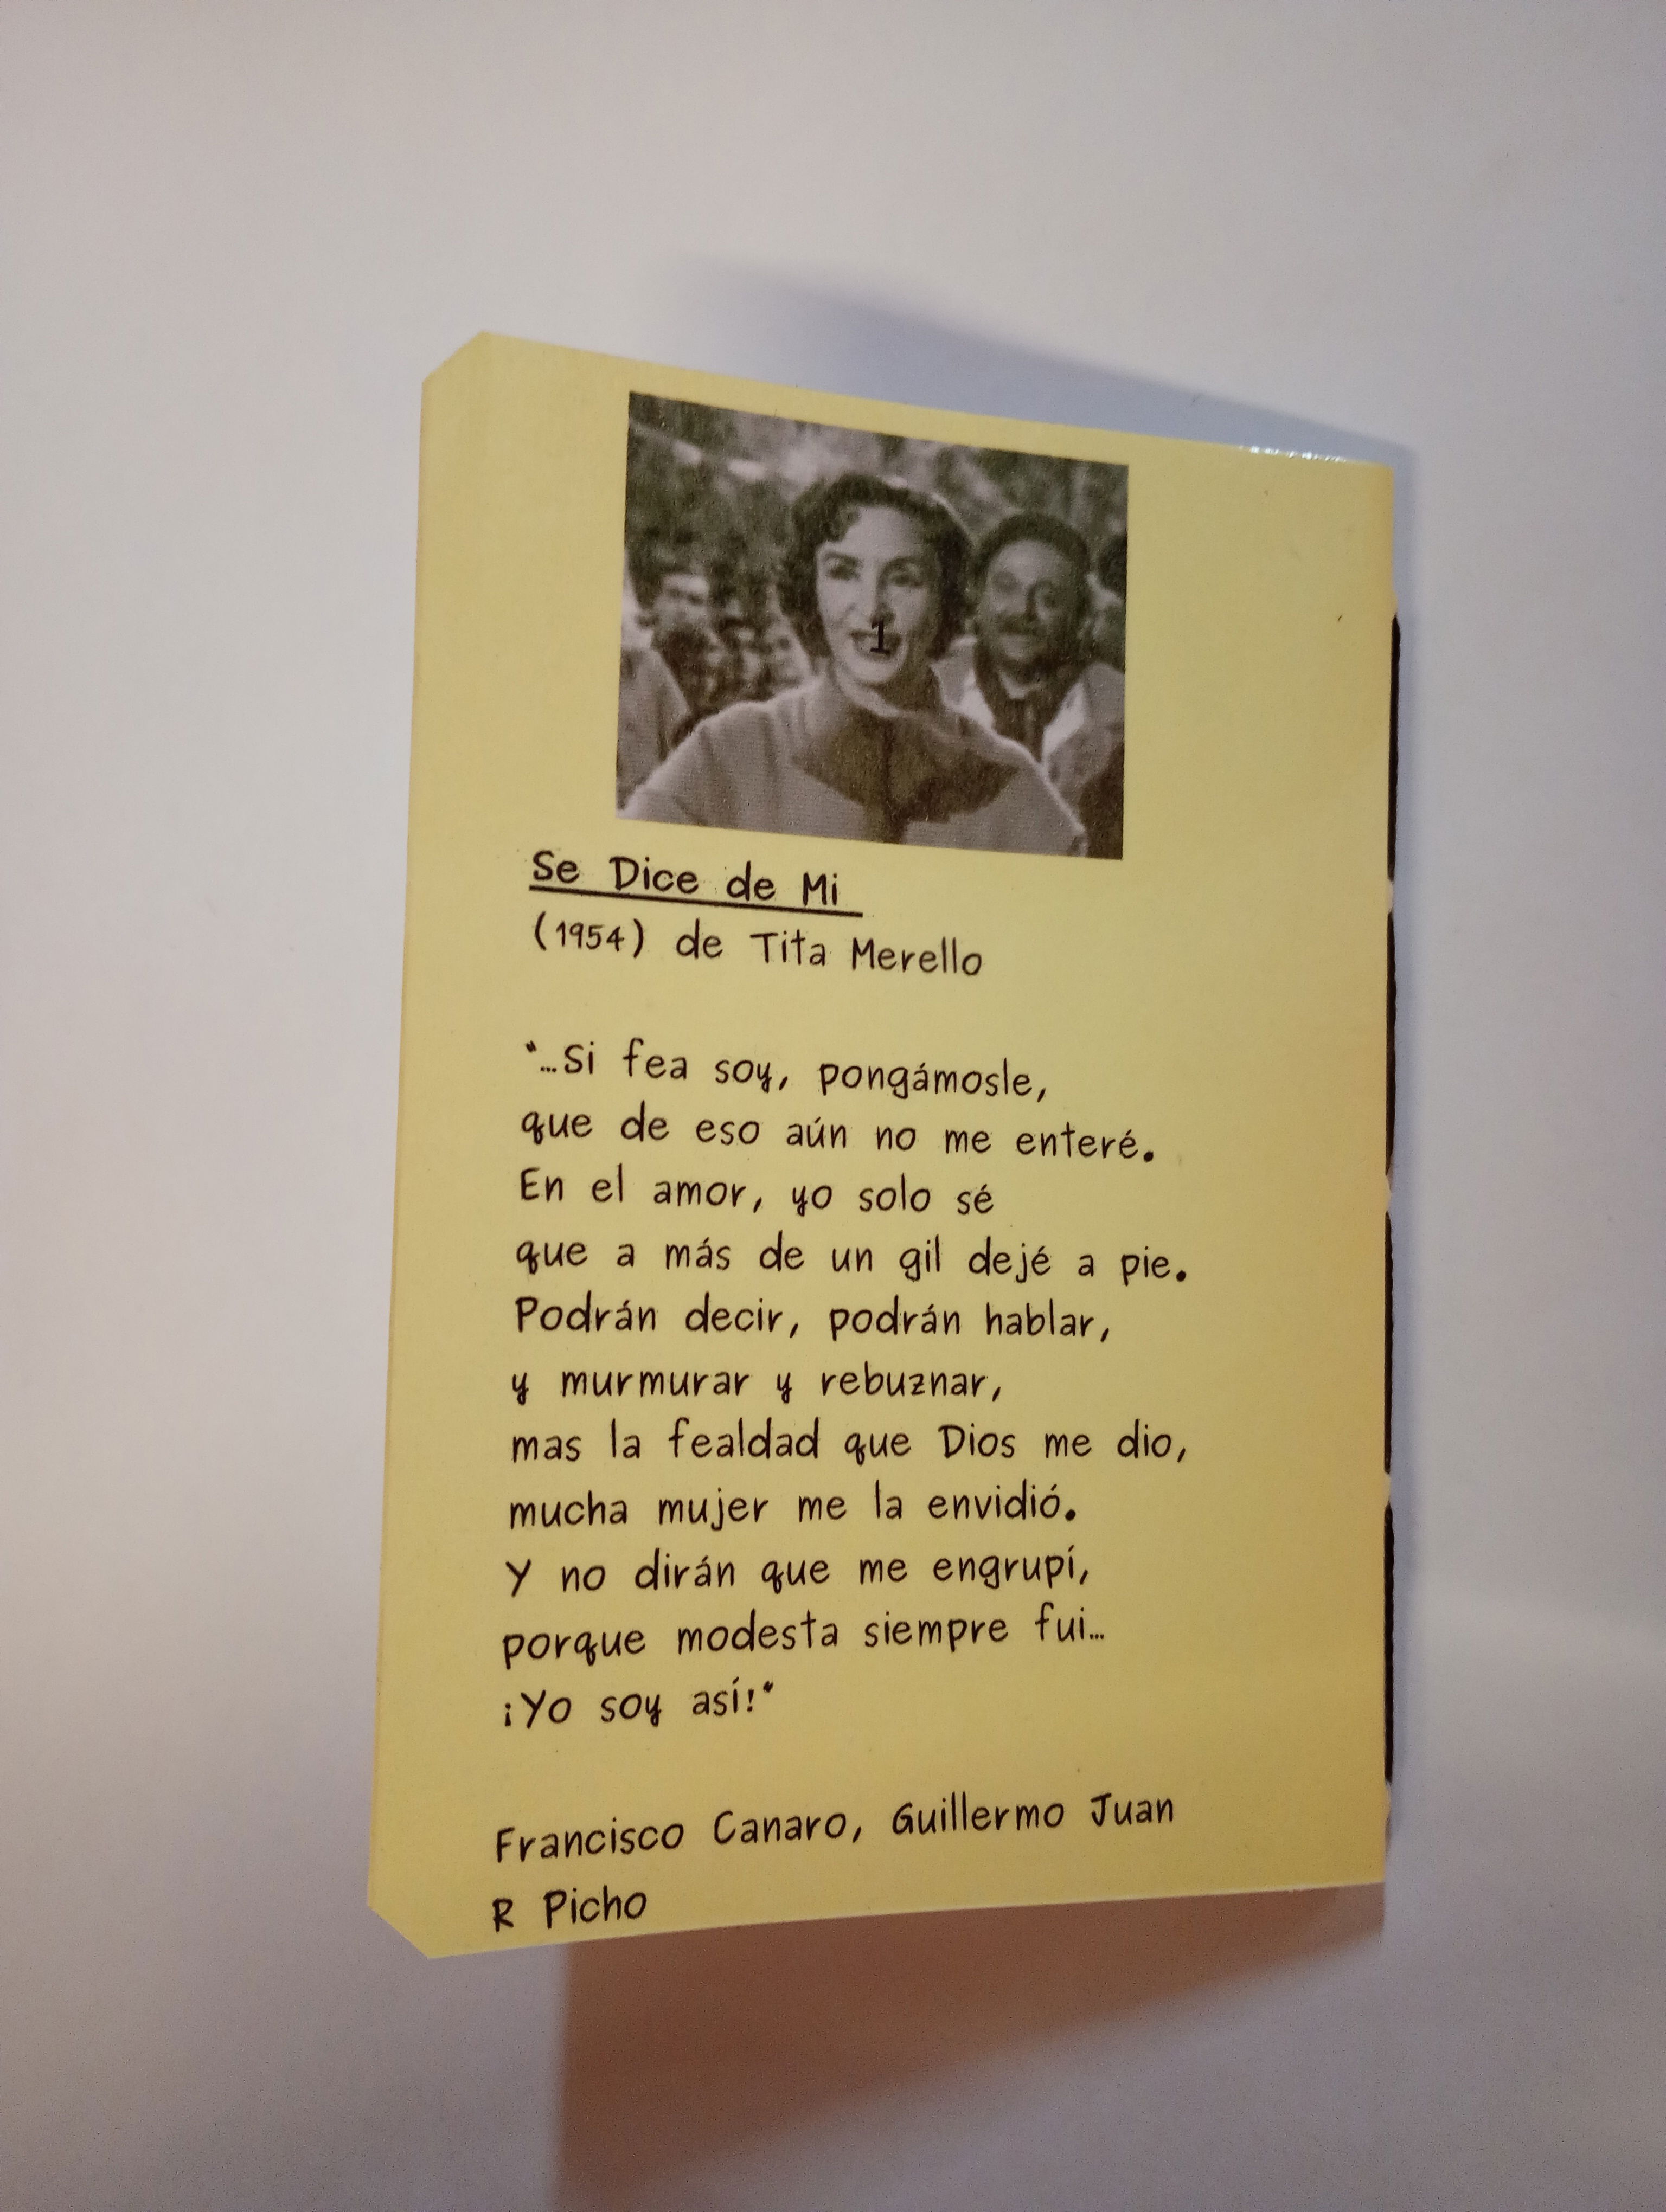 1
Se Dice de Mi
(1954) de Tita Merello
"...Si fea soy, pongámosle,
que de eso aún no me enteré.
En el amor, yo solo sé
que a más de un gil dejé a pie.
Podrán decir, podrán hablar,
y murmurar y rebuznar,
mas la fealdad que Dios me dio,
mucha mujer me la envidió.
Y no dirán que me engrupí,
porque modesta siempre fui...
¡Yo soy así!"
Francisco Canaro, Guillermo Juan
R Picho